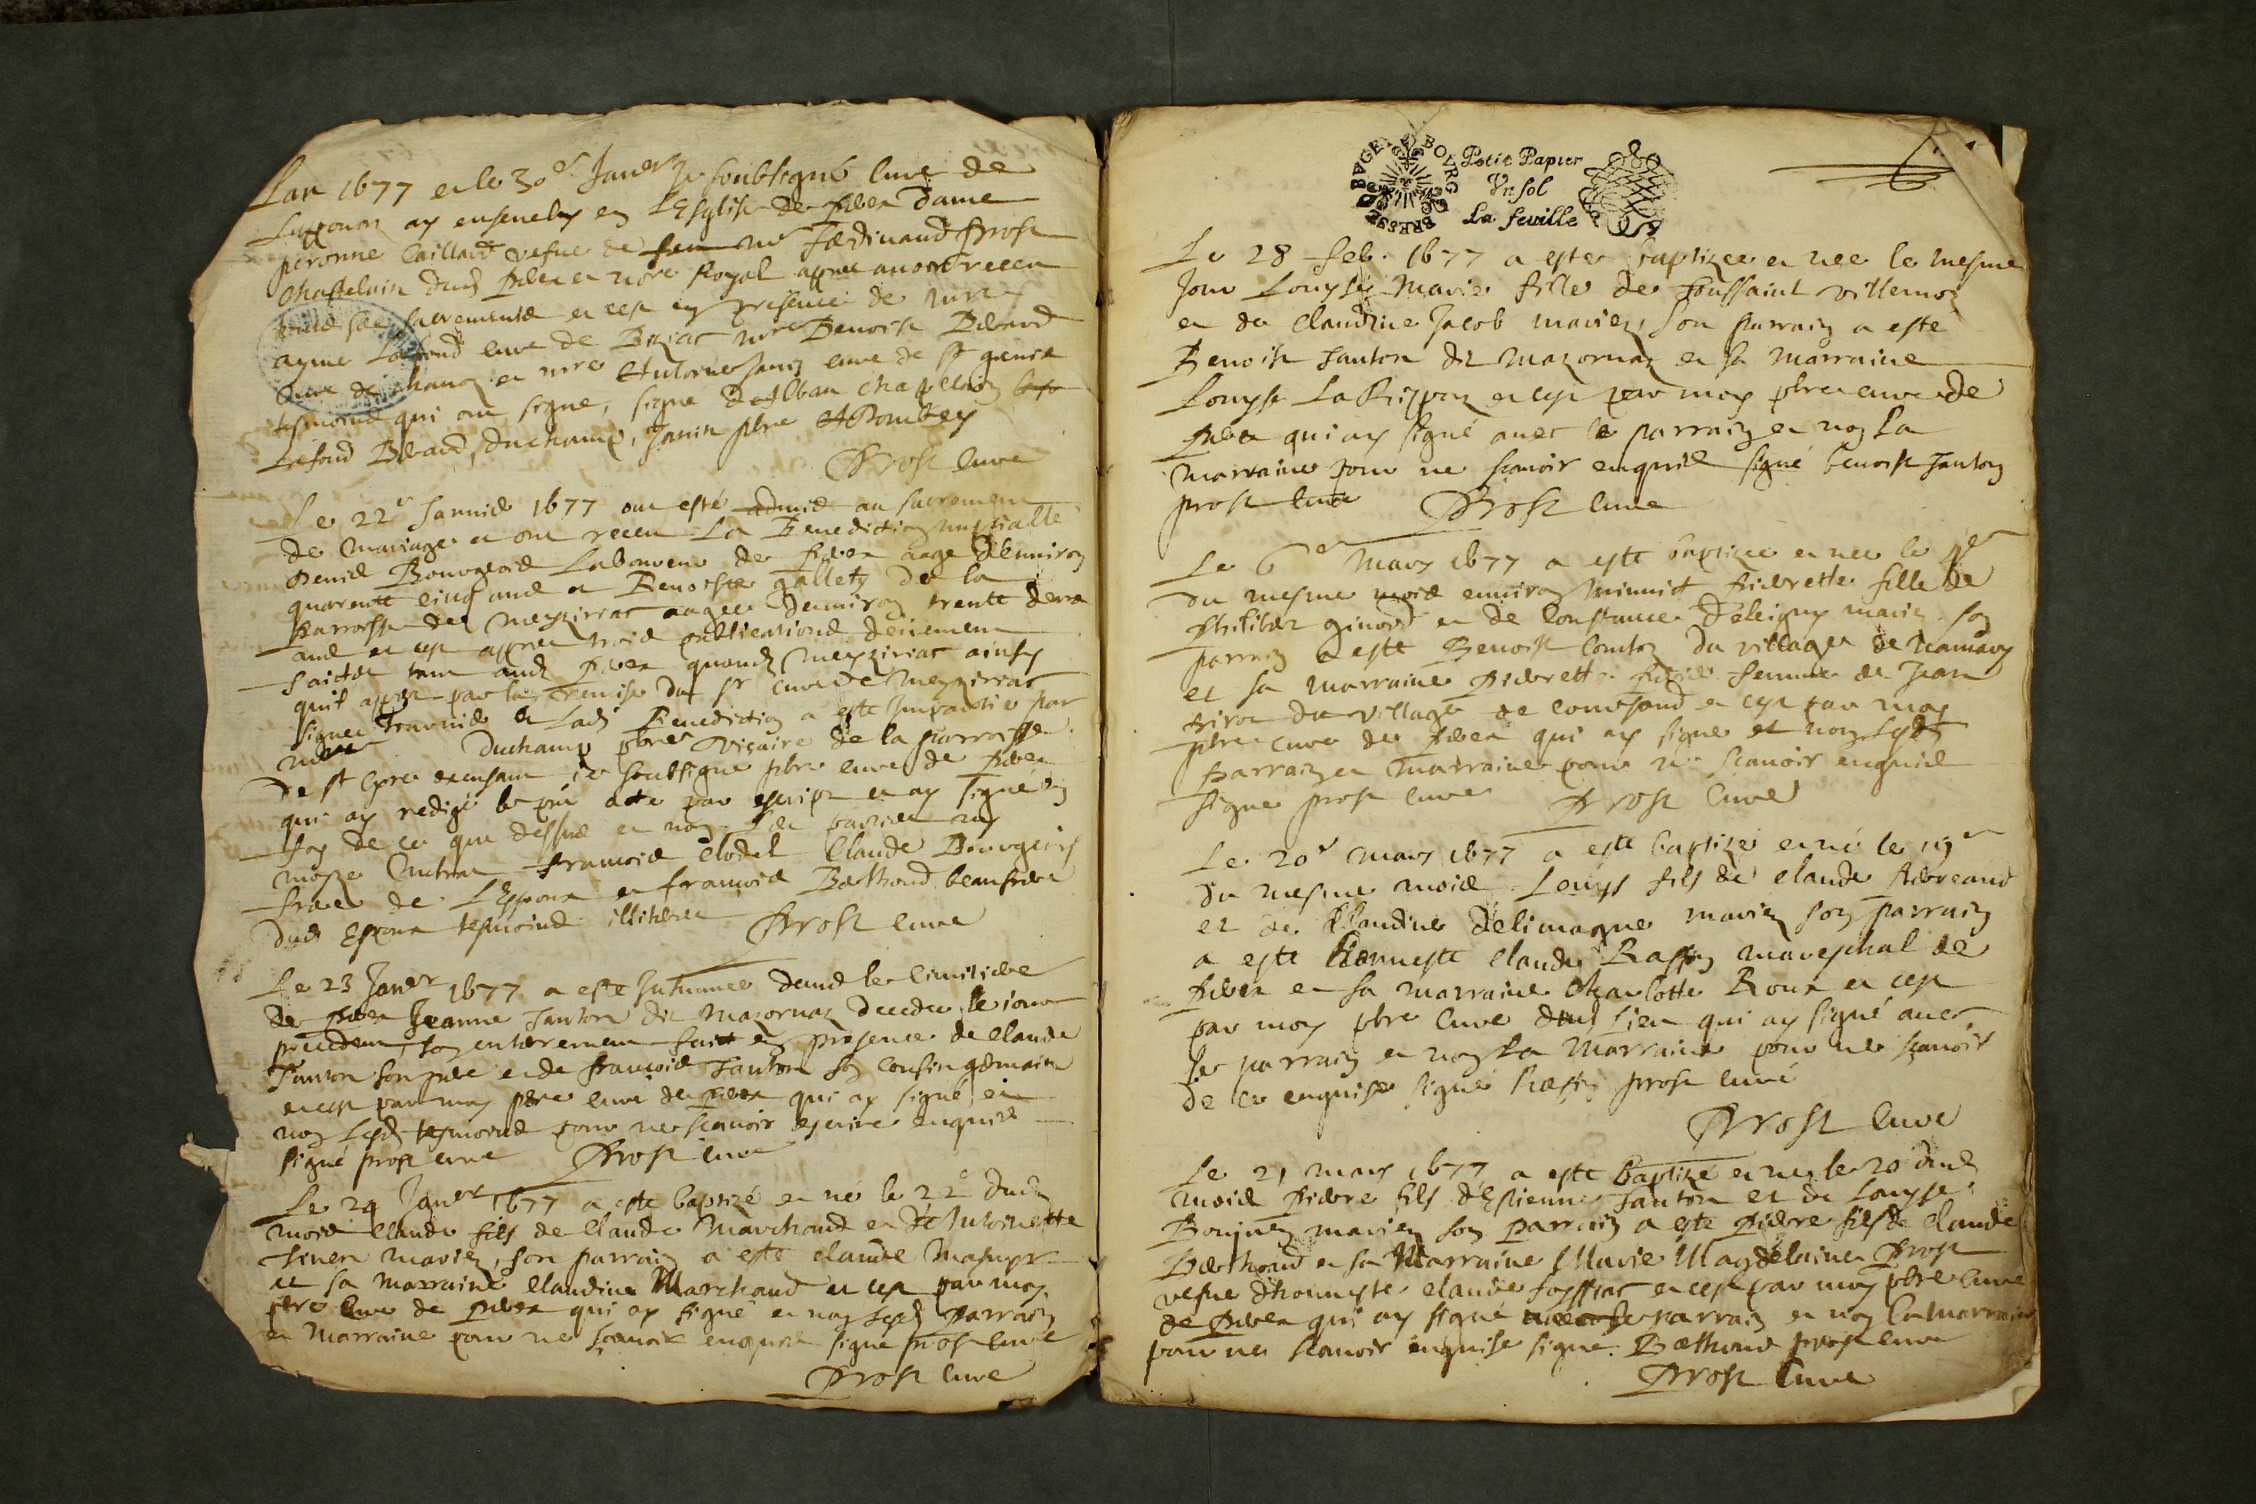 Lan 1677 et le 30e Janer Je soubsigné Curé de
ay ensevely en LEsglise de dame
peronne Caillard vefve de feu mr ferdinand Prost
Chastelain dud et nore Royal appres avoir receu
sacrements et ce en presence de mre
ayme Lafond curé de Biziat mre Benoist Beraud
Curé de et mre Anthoine Janin curé de st genis
tesmoins qui ont signé, signé Dalban chapelain
Lafond Beraud, Duchamp, Janin pbre
Prost Curé
Le 22e Janvié 1677 ont esté admis au sacrement
de mariage et ont receu La Benediction nuptialle
Denis Bourgeois Laboureur de aagé denviron
quarente cinq ans et Benoiste gallety de la
parroisse de Mezziriat aagée denviron trente deux
ans et ce appres trois publications deüement
faictes tant aud quaud Mezziriat ainsy
quil par la remise du sr Curé de Mezziriat
signée et Lad Benediction a esté Impartie par
mre Duchamp pbre vicaire de la parroisse
de st Cyre Je soubsigné pbre curé de
qui ay redigé le pnt acte par escript et ay signé En
foy de ce que dessus et non
francois clodel Claude Bourgeois
frere de LEspoux et francois Berthoud beaufrere
dud Espoux tesmoins illiteres Prost curé
Le 23 Janer 1677 a esté Inhumee dans le Cimitiere
de Jeanne Janton dit Mazornay decedee le iour
precedent, son enterrement faict en presence de claude
Janton son pere et de francois Janton son cousin germain
et ce par moy pbre curé de qui ay signé et
non lesd tesmoins pour ne scavoir escrire enquis
signé prost curé Prost curé
Le 24 Janer 1677 a esté baptizé et né le 22e dud
mois Claude fils de Claude Marchand et dAntoinette
mariez, son parrain a esté claude
et sa marraine Claudine Marchand et ce par moy
pbre Curé de qui ay signé et non lesd parrain
et marraine pour ne scavoir enquis signé prost curé
Prost Curé
BRESSE BVGE BOVRG
Petit Papier
Vn sol
La feuille
Le 28 feb. 1677 a esté baptizee et nee le mesme
Jour Louyse Marie fille de Toussaint villernoz
et de Claudine Jacob mariez, Son parrain a esté
Benoist Janton dit Mazornay et sa marraine
Louyse et ce par moy pbre curé de
qui ay signé avec le parrain et non La
marraine pour ne scavoir enquis signé benoist Janton
prost curé Prost Curé
Le 6e Mars 1677 a esté baptizee et nee le
du mesme mois environ minuict pierrette fille de
philibert ginord et de Constance Deleigny mariez son
parrain a esté Benoist Comtoz du village de
et sa marraine pierrette femme de Jean
du village de et ce par moy
pbre curé de qui ay signé et non lesd
parrain et marraine pour ne scavoir enquis
signé prost curé Prost Curé
Le 20e Mars 1677 a esté baptizé et né le 19e
du mesme mois Louys fils de claude
et de Claudine Delimagne mariez son parrain
a esté honneste Claude Raffin mareschal de
et sa marraine Charlotte Roux et ce
par moy pbre Curé dud lieu qui ay signé avec
le parrain et non La Marraine pour ne scavoir
de ce enquise signé Raffin prost curé
Prost Curé
Le 21 mars 1677 a esté baptizé et né le 20 dud
mois pierre fils dEstienne Janton et de Louyse
mariez son parrain a esté pierre fils de claude
Berthoud et sa Marraine Marie Magdelaine Prost
vefve dhonneste claude et ce par moy pbre curé
de qui ay signé avec le parrain et non la marraine
pour ne scavoir enquise signé. Berthoud prost curé
Prost Curé